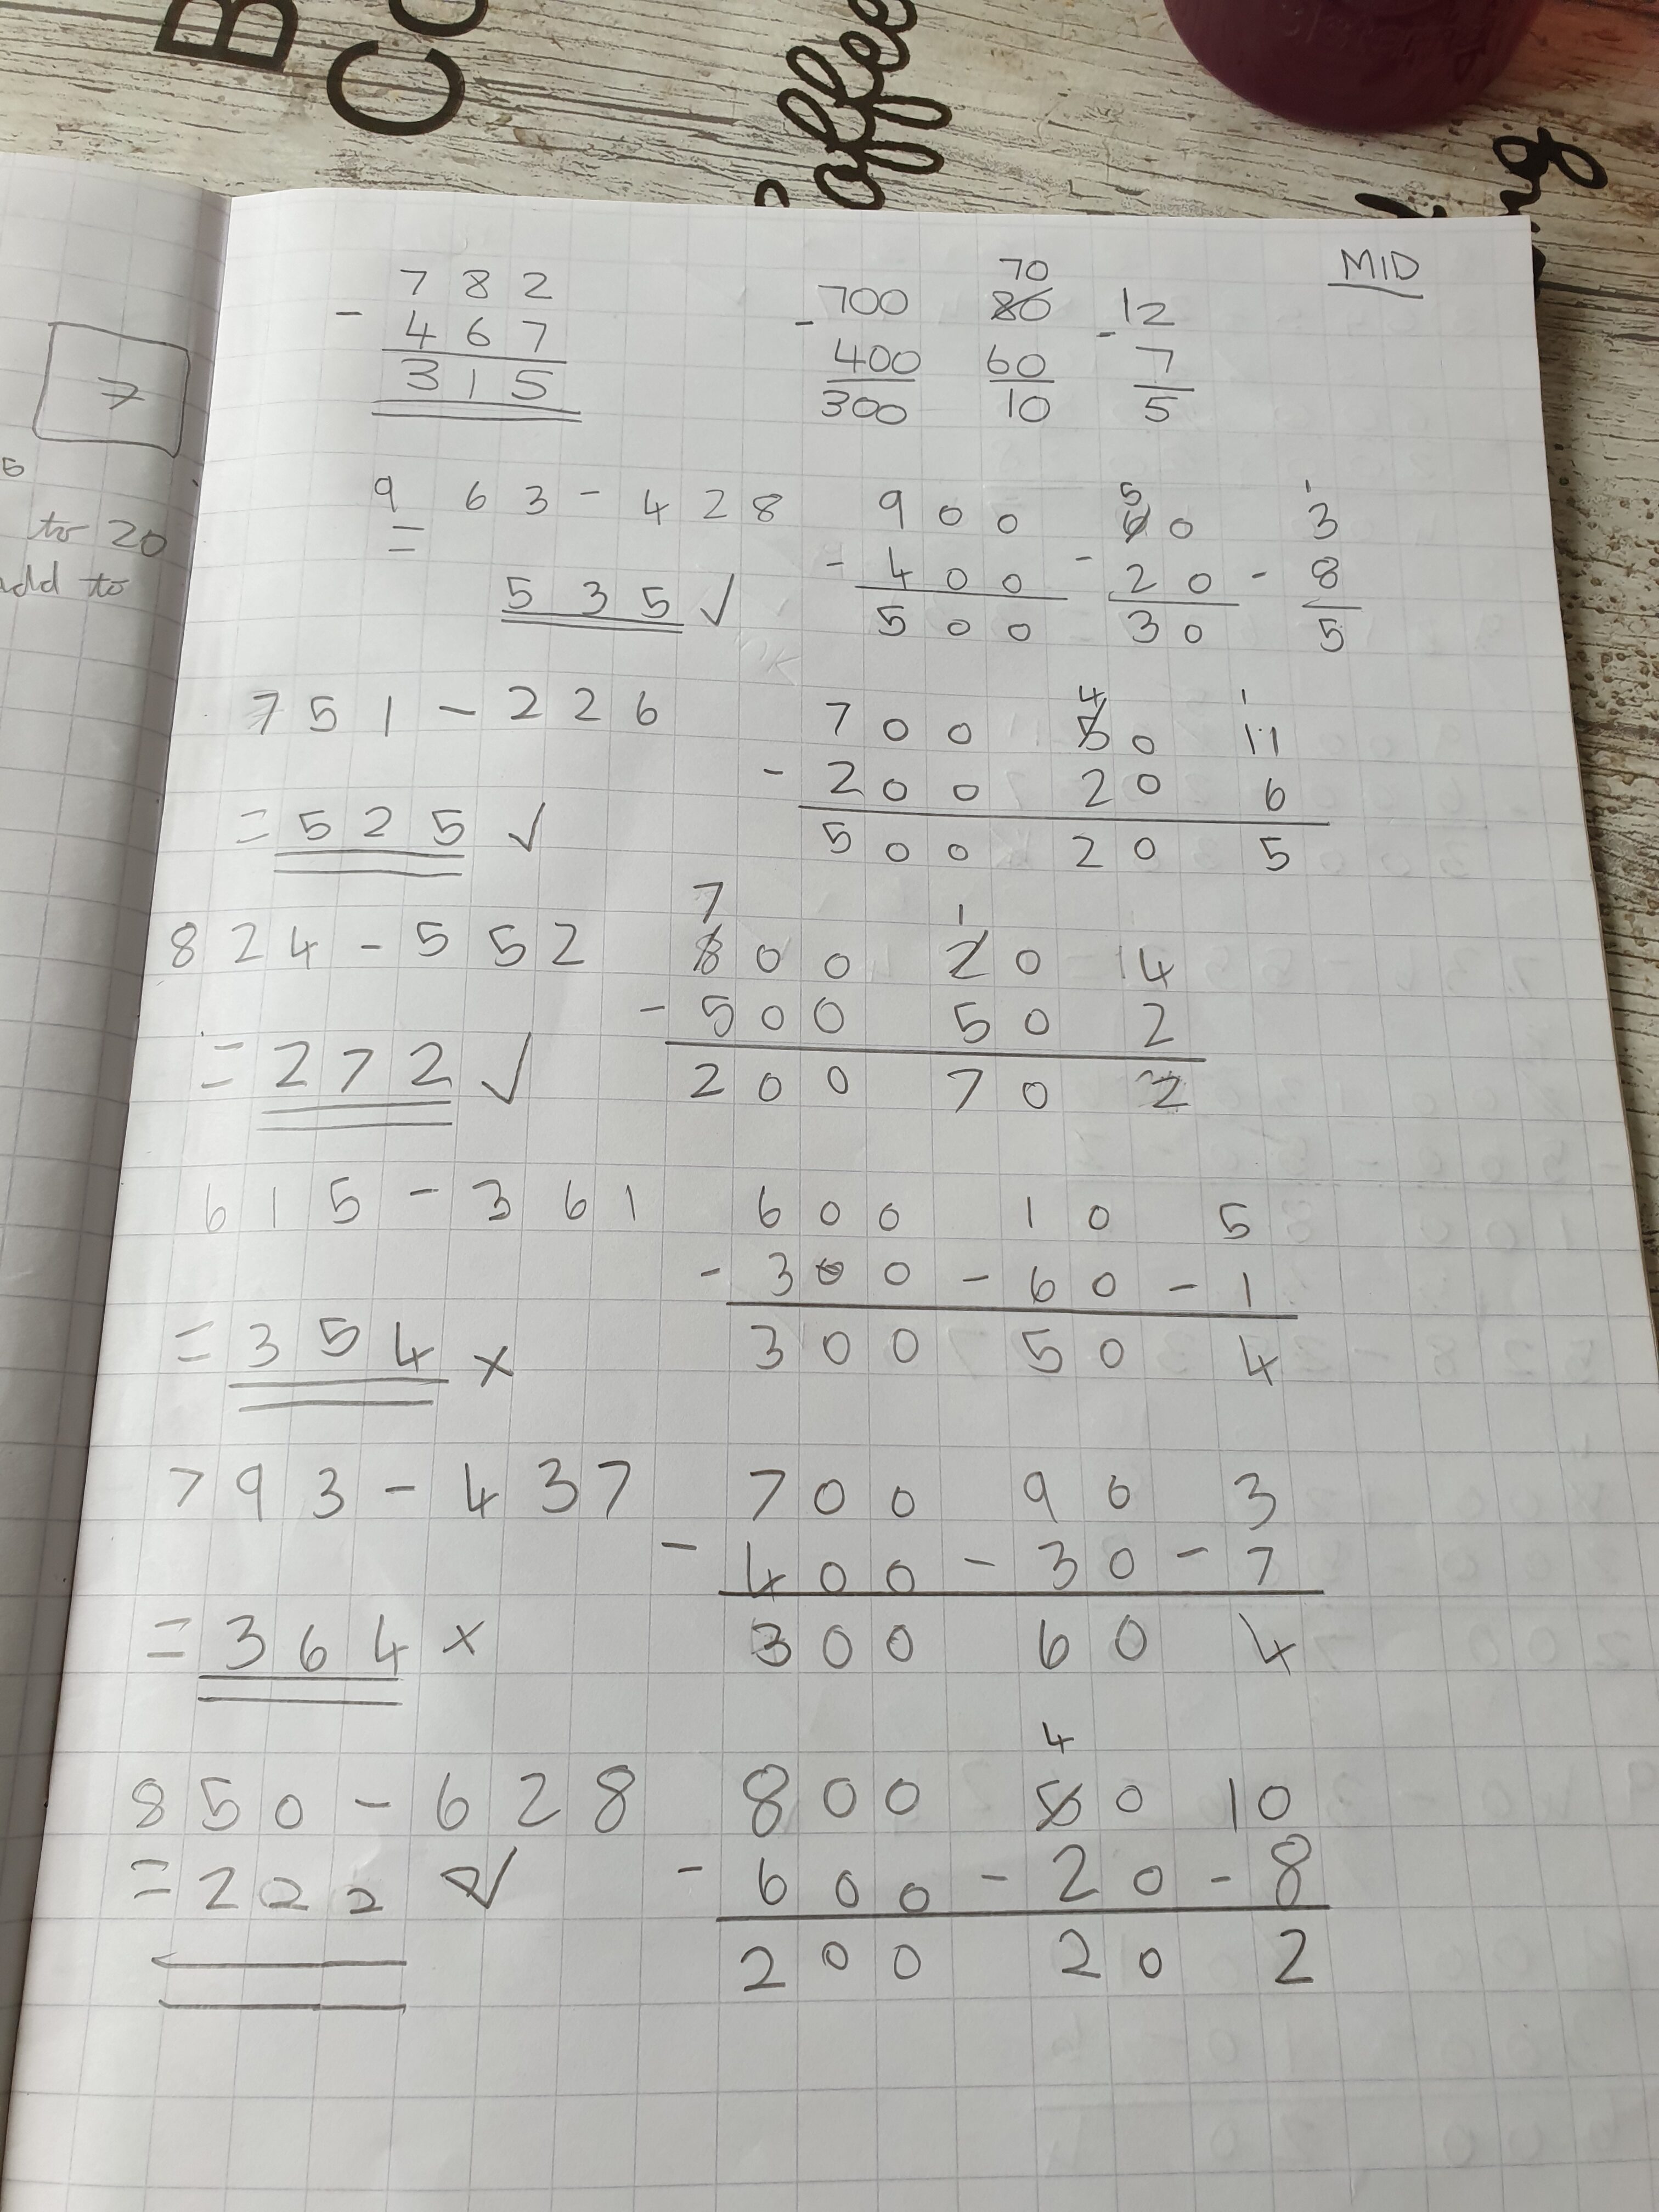 B
Co
Coffee
MID
7 8 2
- 4 6 7
3 1 5
70
700 80 12
- 400 60 - 7
300 10 5
7
to 20
add to
9 6 3 - 4 2 8
=
5 3 5 ✓
5 1
9 0 0 6 0 3
- 4 0 0 - 2 0 - 8
5 0 0 3 0 5
7 5 1 - 2 2 6
= 5 2 5 ✓
4 1
7 0 0 5 0 11
- 2 0 0 2 0 6
5 0 0 2 0 5
8 2 4 - 5 5 2
= 2 7 2 ✓
7 1
8 0 0 2 0 14
- 5 0 0 5 0 2
2 0 0 7 0 2
6 1 5 - 3 6 1
= 3 5 4 x
6 0 0 1 0 5
- 3 0 0 - 6 0 - 1
3 0 0 5 0 4
7 9 3 - 4 3 7
= 3 6 4 x
7 0 0 9 0 3
- 4 0 0 - 3 0 - 7
3 0 0 6 0 4
8 5 0 - 6 2 8
= 2 2 2 ✓
4
8 0 0 5 0 10
- 6 0 0 - 2 0 - 8
2 0 0 2 0 2